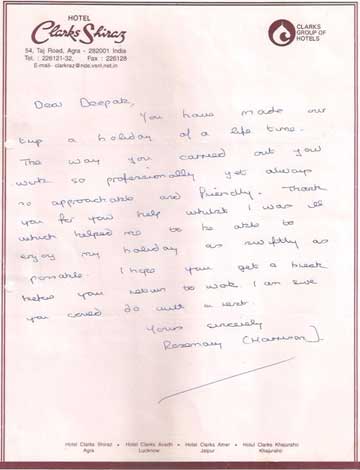 HOTEL
Clarks Shiraz
54, Taj Road, Agra - 282001 India
Tel. : 226121-32, Fax : 226128
E-mail- clarkraz@nde.vsnl.net.in
CLARKS
GROUP OF
HOTELS
Dear Deepak,
You have made our
trip a holiday of a life time.
The way you carried out your
work so professionally yet always
so approachable and friendly. Thank
you for your help whilst I was ill
which helped me to be able to
enjoy my holiday as swiftly as
possible. I hope you get a break
before you return to work. I am sure
you could do with a rest.
Yours sincerely
Rosemary (Harrison)
Hotel Clarks Shiraz • Hotel Clarks Avadh • Hotel Clarks Amer • Hotel Clarks Khajuraho
Agra Lucknow Jaipur Khajuraho